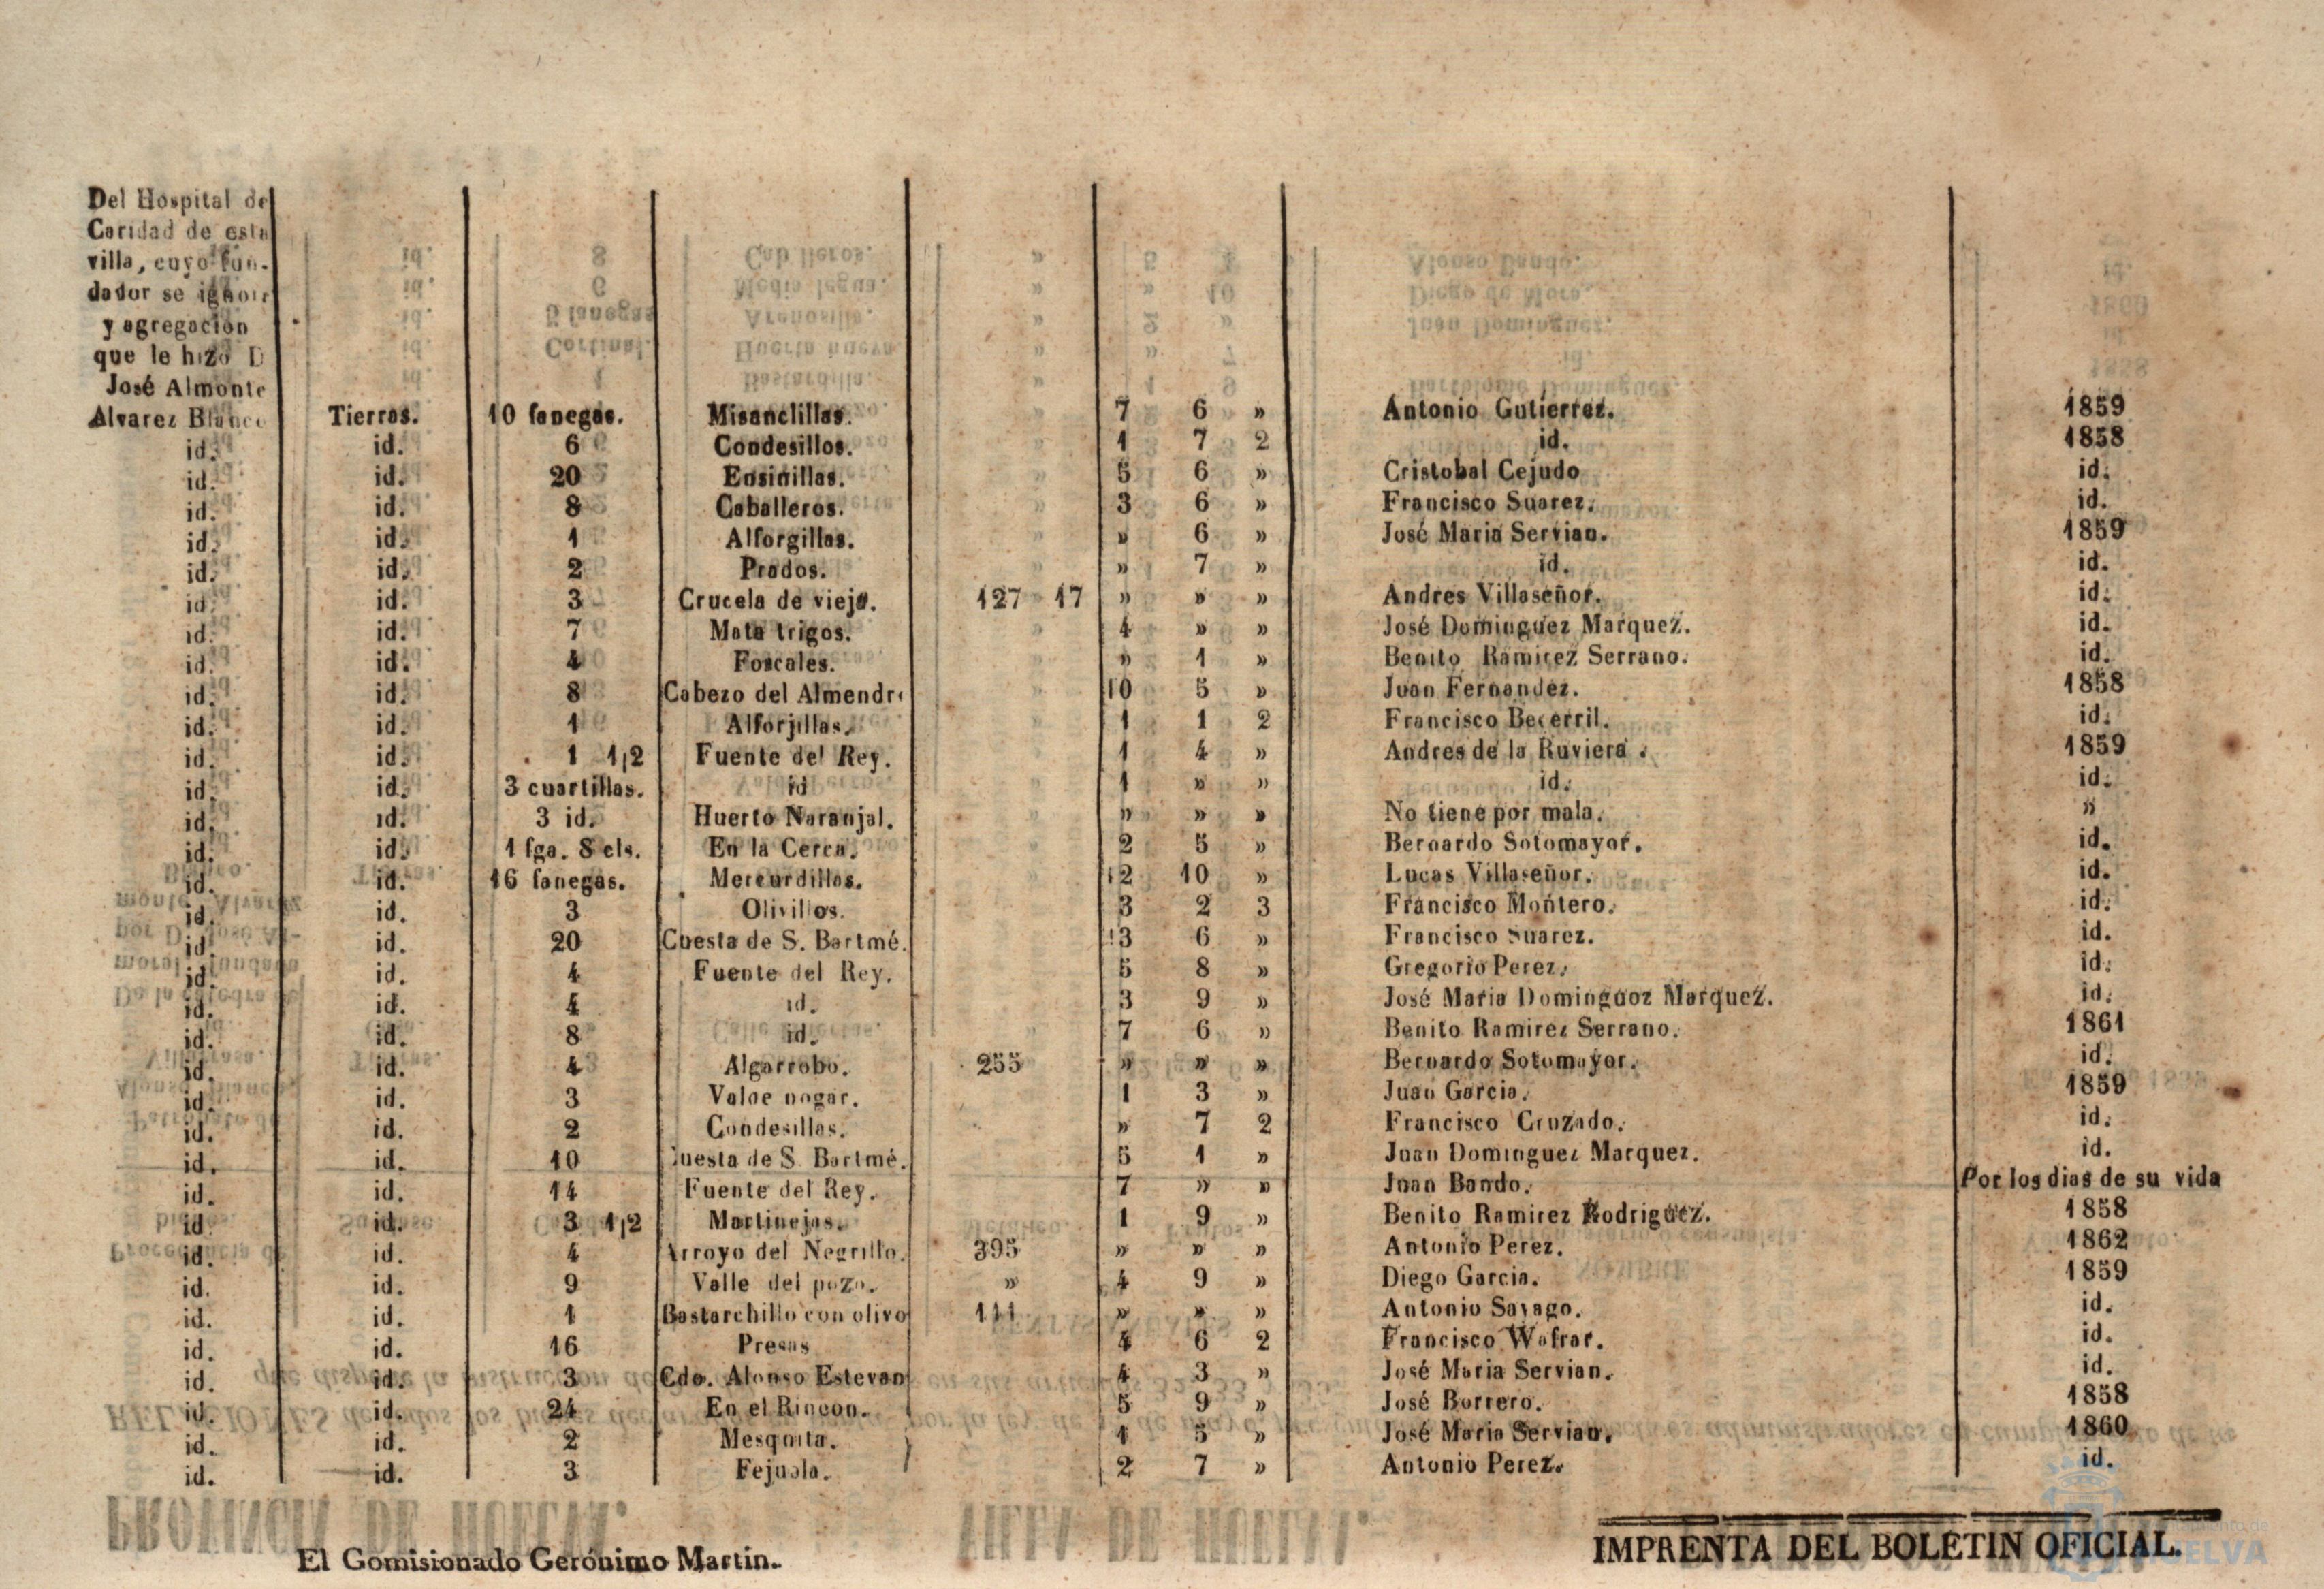 Del Hospital de
Caridad de esta
villa, cuyo fun-
dador se ignora
y agregacion
que le hizo D
José Almonte
Alvarez Blanco Tierras. 10 fanegas. Misanclillas. 7 6 » Antonio Gutierrez. 1859
id. id. 6 Condesillos. 1 7 2 id. 1858
id. id. 20 Ensinillas. 5 6 » Cristobal Cejudo id.
id. id. 8 Caballeros. 3 6 » Francisco Suarez. id.
id. id. 1 Alforgillas. » 6 » José Maria Servian. 1859
id. id. 2 Prados. » 7 » id. id.
id. id. 3 Crucela de vieja. 127 17 » » » Andres Villaseñor. id.
id. id. 7 Mata trigos. 4 » » José Dominguez Marquez. id.
id. id. 4 Foscales. » 1 » Benito Ramirez Serrano. id.
id. id. 8 Cabezo del Almendr 10 5 » Juan Fernandez. 1858
id. id. 1 Alforjillas. 1 1 2 Francisco Becerril. id.
id. id. 1 1,2 Fuente del Rey. 1 4 » Andres de la Ruviera. 1859
id. id. 3 cuartillas. id 1 » » id. id.
id. id. 3 id. Huerto Naranjal. » » » No tiene por mala. »
id. id. 1 fga. 8 cls. En la Cerca. 2 5 » Bernardo Sotomayor. id.
id. id. 16 fanegas. Mercurdillas. 12 10 » Lucas Villaseñor. id.
id. id. 3 Olivillos. 3 2 3 Francisco Montero. id.
id. id. 20 Cuesta de S. Bartmé. 13 6 » Francisco Suarez. id.
id. id. 4 Fuente del Rey. 5 8 » Gregorio Perez. id.
id. id. 4 id. 3 9 » José Maria Dominguoz Marquez. id.
id. id. 8 id. 7 6 » Benito Ramirez Serrano. 1861
id. id. 4 Algarrobo. 255 » » » Bernardo Sotomayor. id.
id. id. 3 Valde nogar. 1 3 » Juan Garcia. 1859
id. id. 2 Condesillas. » 7 2 Francisco Cruzado. id.
id. id. 10 uesta de S. Bartmé. 5 1 » Juan Dominguez Marquez. id.
id. id. 14 Fuente del Rey. 7 » » Juan Bando. Por los dias de su vida
id. id. 3 1,2 Martinejas. 1 9 » Benito Ramirez Rodriguez. 1858
id. id. 4 Arroyo del Negrillo. 395 » » » Antonio Perez. 1862
id. id. 9 Valle del pozo. » 4 9 » Diego Garcia. 1859
id. id. 1 Bastarchillo con olivo 111 » » » Antonio Sayago. id.
id. id. 16 Presas 4 6 2 Francisco Wafrar. id.
id. id. 3 Cdo. Alonso Estevan 4 3 » José Maria Servian. id.
id. id. 24 En el Rincon. 5 9 » José Borrero. 1858
id. id. 2 Mesquita. 1 5 » José Maria Servian. 1860
id. id. 3 Fejuela. 2 7 » Antonio Perez. id.
El Gomisionado Gerónimo Martin.
IMPRENTA DEL BOLETIN OFICIAL.
HUELVA